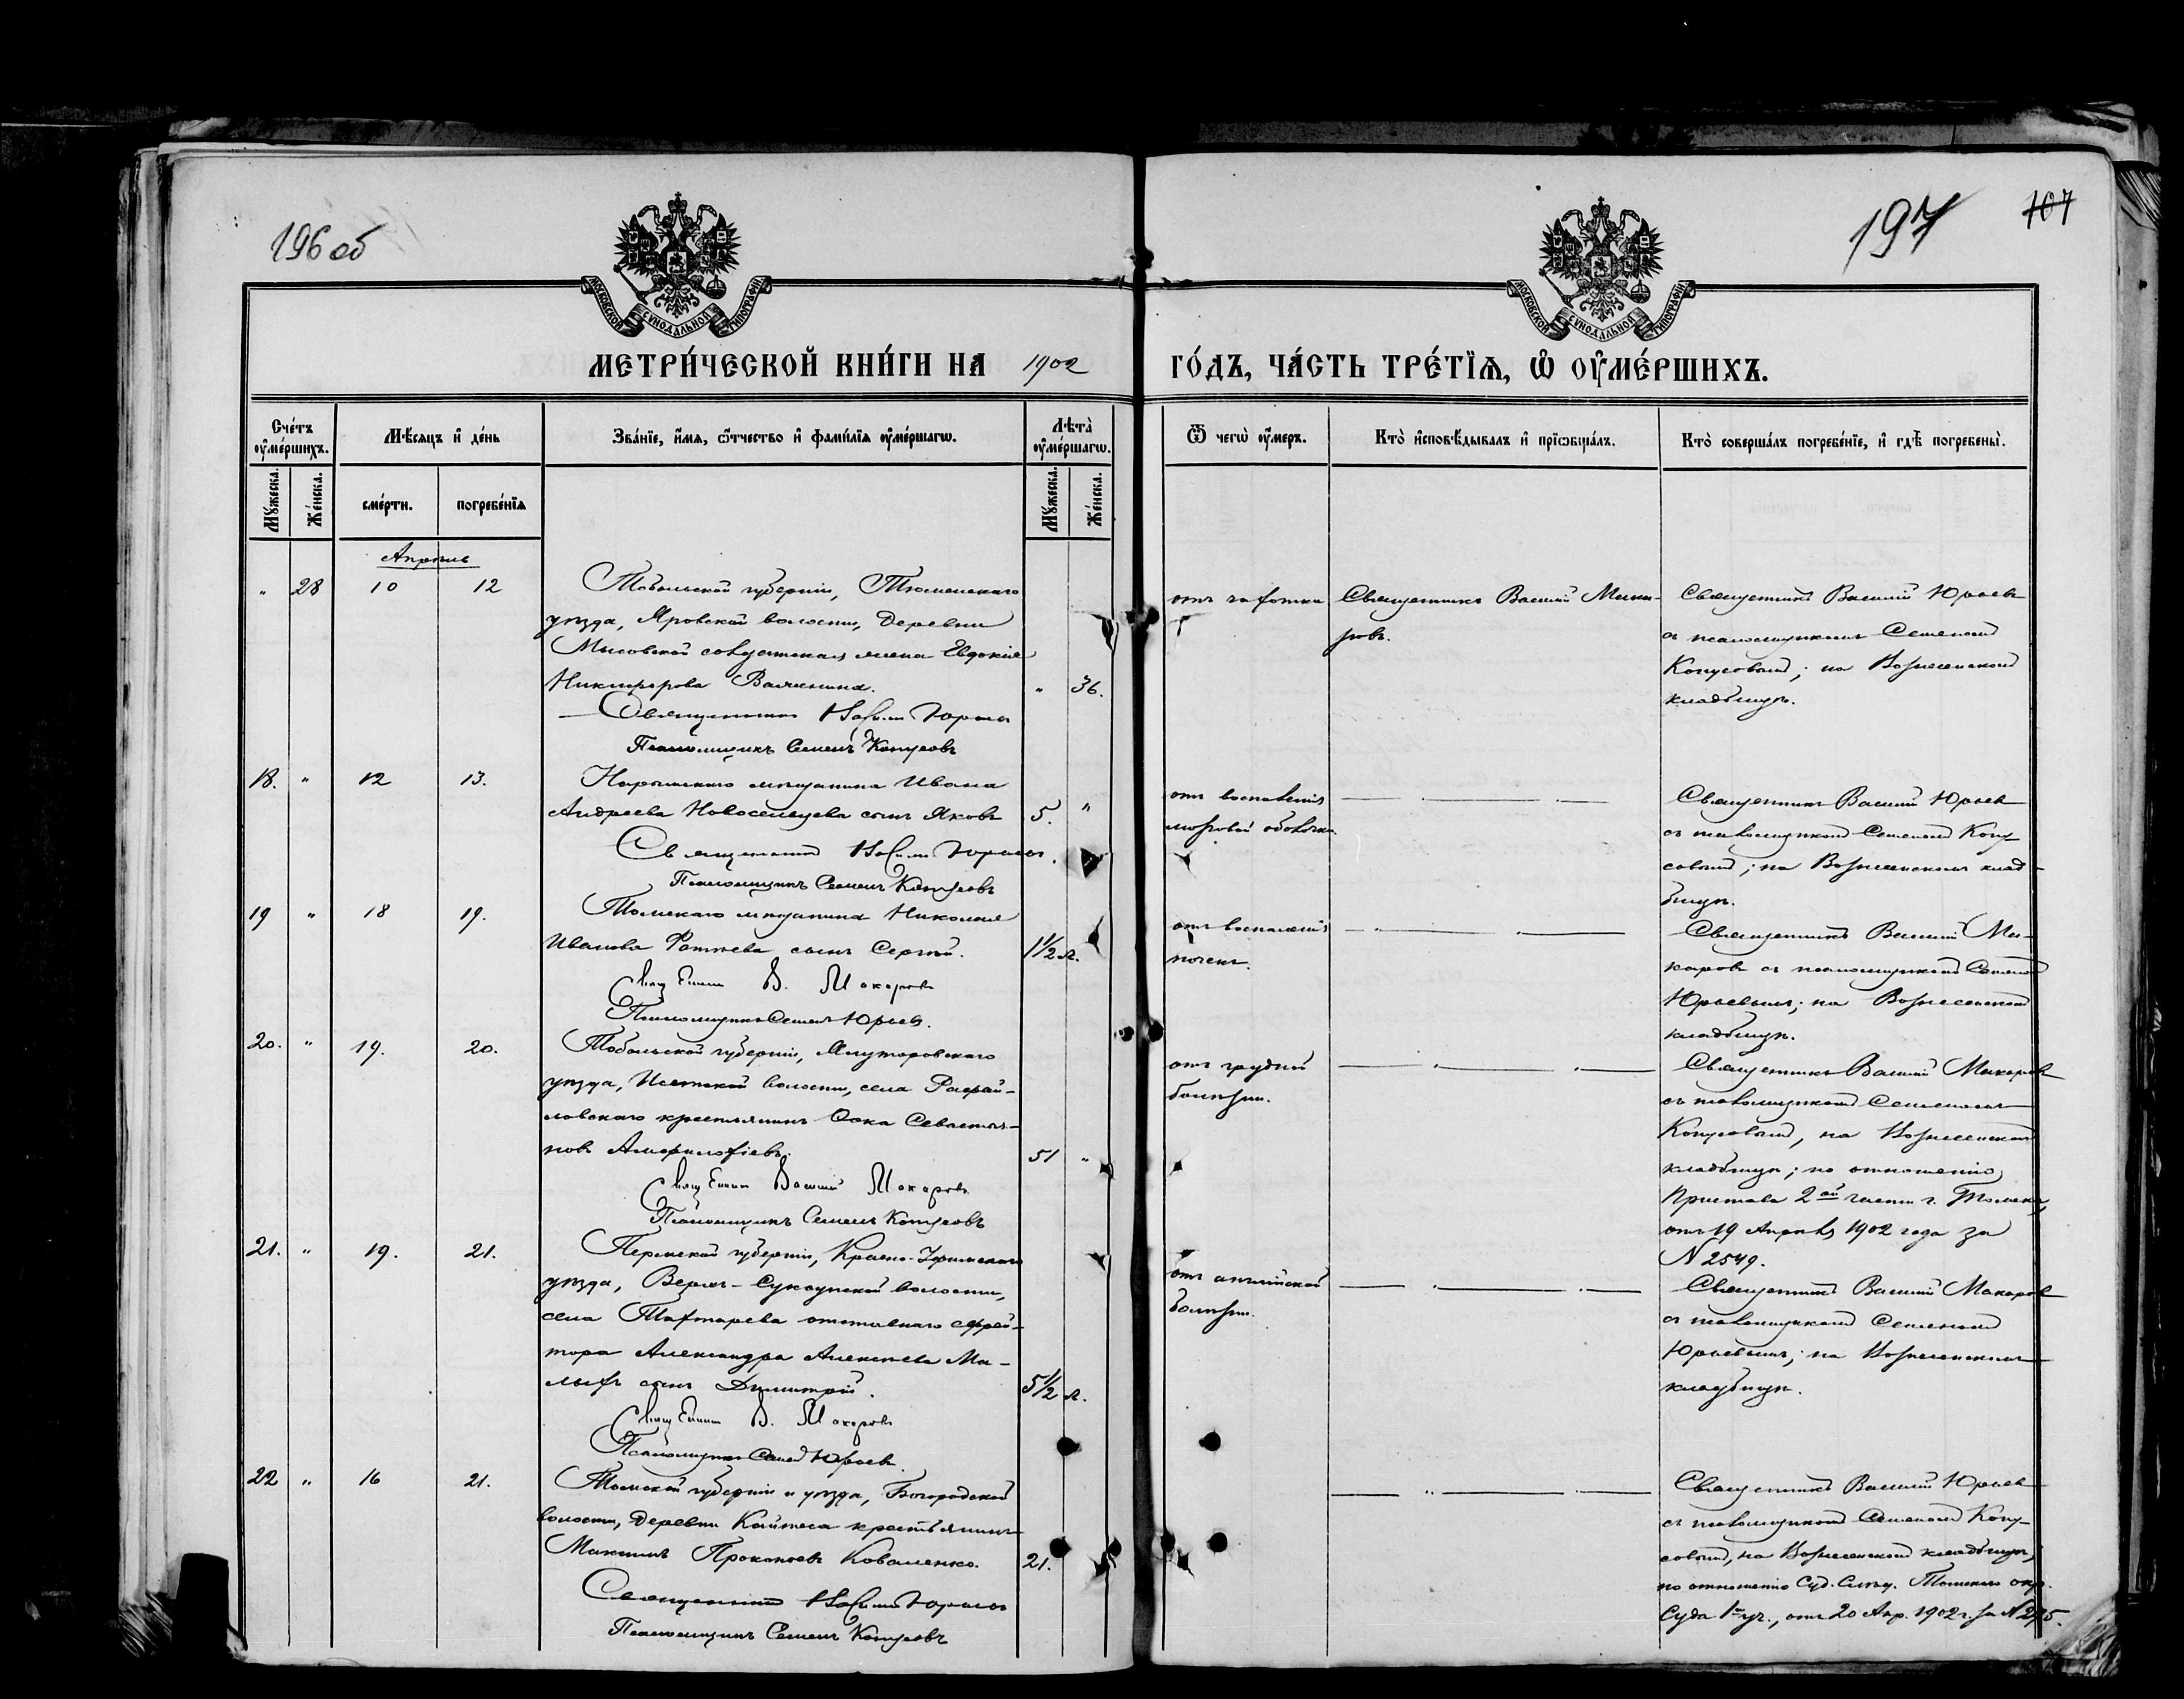 196 об
197
107
МОСКОВСКОЙ СѴНОДАЛЬНОЙ ТИПОГРАФІИ.
МОСКОВСКОЙ СѴНОДАЛЬНОЙ ТИПОГРАФІИ.
МЕТРИ́ЧЕСКОЙ КНИ́ГИ НА 1902 ГО́ДЪ, ЧА́СТЬ ТРЕ́ТЇѦ, Ѡ҆ ОУ҆МЕ́РШИХЪ.
Сче́тъ оу҆ме́ршихъ.
Мѣ́сяцъ и҆ де́нь
Зва́нїе, и҆́мя, ѻ҆́тчество и҆ фами́лїя оу҆ме́ршагѡ.
Лѣ́та̀ оу҆ме́ршагѡ.
Ѿ чегѡ̀ оу҆́меръ.
Кто̀ и҆сповѣ́дывалъ и҆ прїѡбща́лъ.
Кто̀ соверша́лъ погребе́нїе, и҆ гдѣ̀ погребены̀.
Мꙋ́жеска.
Же́нска.
сме́рти.
погребе́нїя
Мꙋ́жеска.
Же́нска.
Апрѣль
" 28 10 12
Тобольской губерніи, Тюменскаго
уѣзда, Яровской волости, деревни
Мысовской жена Евдокія
Никифорова
" 36.
Священникъ Василій Юрьевъ
Псаломщикъ Семенъ Копусовъ
отъ чахотки
Священникъ Василій Мака-
ровъ.
Священникъ Василій Юрьевъ
съ псаломщикомъ Семеномъ
Копусовымъ; на Вознесенскомъ
кладбищѣ.
18. " 12 13.
Нарымскаго мѣщанина Ивана
Андреева Новосельцева сынъ Яковъ
5. "
Священникъ Василій Юрьевъ.
Псаломщикъ Семенъ Копусовъ
отъ воспаленія
мозговой оболочки.
Священникъ Василій Юрьевъ
съ псаломщикомъ Семеномъ Копу-
совымъ; на Вознесенскомъ клад-
бищѣ.
19 " 18 19.
Томскаго мѣщанина Николая
Иванова сынъ Сергѣй.
1½ л.
Священникъ В. Макаровъ
Псаломщикъ Семенъ Юрьевъ.
отъ воспаленія
почекъ.
Священникъ Василій Ма-
каровъ съ псаломщикомъ Семеномъ
Юрьевымъ; на Вознесенскомъ
кладбищѣ.
20. " 19. 20.
Тобольской губерніи, Ялуторовскаго
уѣзда, Исетской волости, села Рафаи-
ловскаго крестьянинъ Ѳока Севастья-
новъ Амфилохіевъ.
51 "
Священникъ Василій Макаровъ
Псаломщикъ Семенъ Копусовъ
отъ грудной
болѣзни.
Священникъ Василій Макаровъ
съ псаломщикомъ Семеномъ
Копусовымъ, на Вознесенскомъ
кладбищѣ; по отношенію
Пристава 2ой части г. Томска,
отъ 19 Апрѣля 1902 года за
N 2549.
21. " 19. 21.
Пермской губерніи, Красно-Уфимскаго
уѣзда, Верхъ-Суксунской волости,
села отставнаго ефрей-
тора Александра Алексѣева Ма-
лыхъ сынъ Димитрій.
5½ л.
Священникъ В. Макаровъ
Псаломщикъ Семенъ Юрьевъ
отъ англійской
болѣзни.
Священникъ Василій Макаровъ
съ псаломщикомъ Семеномъ
Юрьевымъ; на Вознесенскомъ
кладбищѣ.
22 " 16 21.
Томской губерніи и уѣзда, Богородской
волости, деревни крестьянинъ
Максимъ Прокопьевъ Коваленко.
21.
Священникъ Василій Юрьевъ
Псаломщикъ Семенъ Копусовъ
Священникъ Василій Юрьевъ
съ псаломщикомъ Семеномъ Копу-
совымъ, на Вознесенскомъ кладбищѣ,
по отношенію Суд. Слѣд. Томскаго окр.
Суда 1 уч., отъ 20 Апр. 1902 г. за N